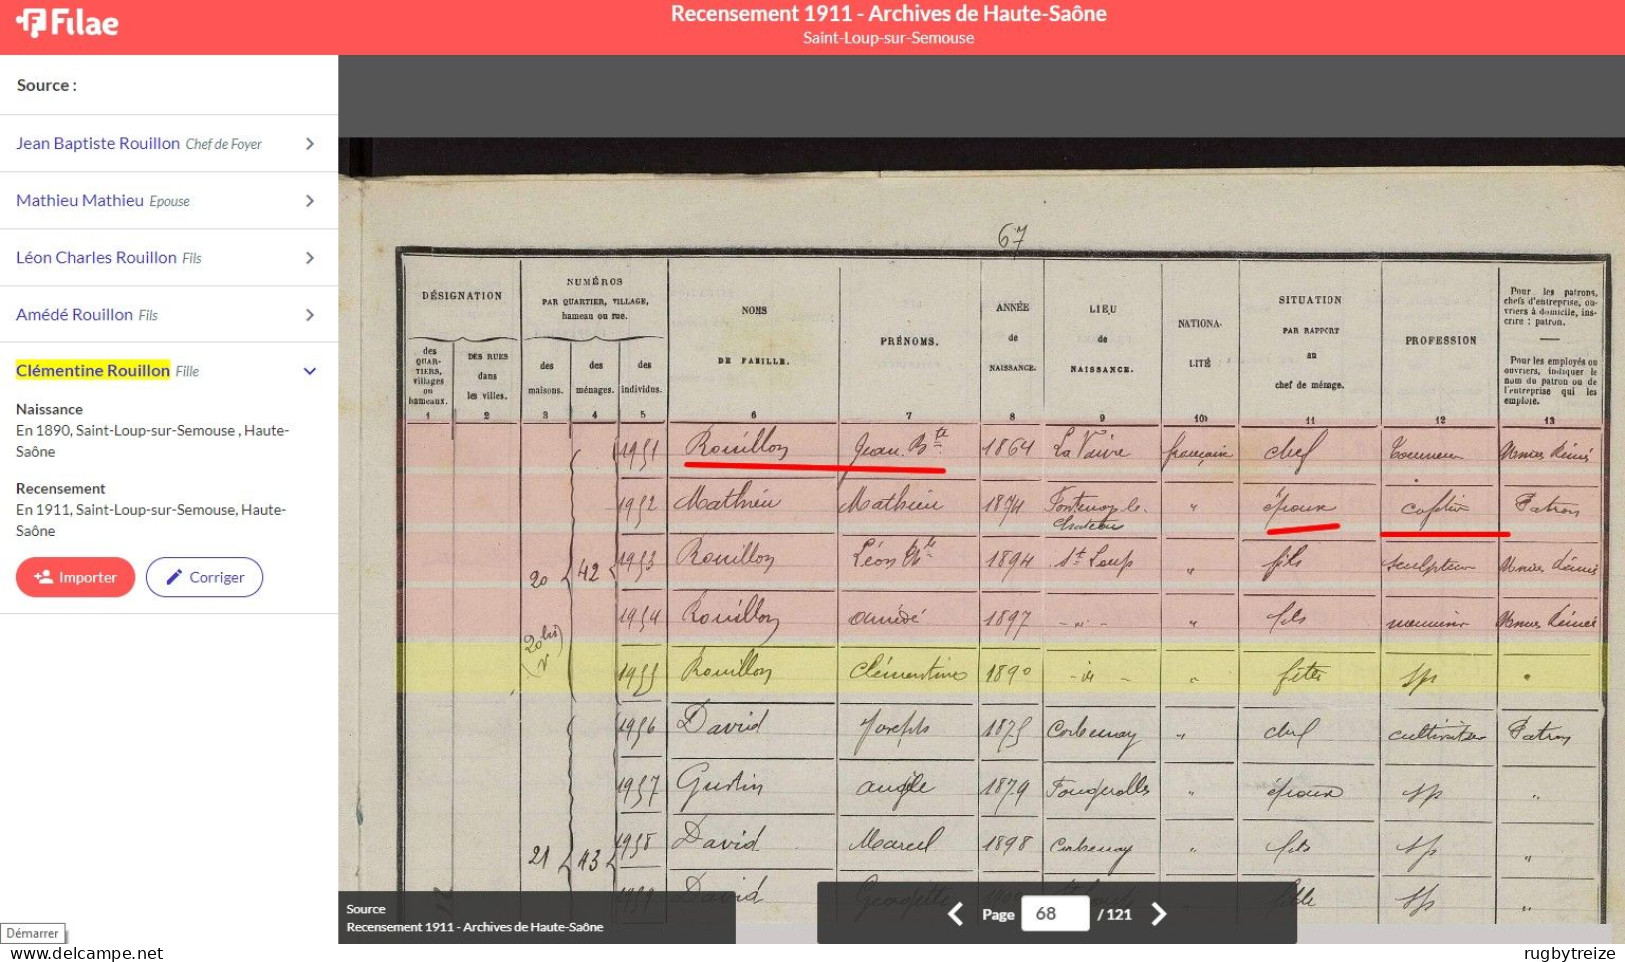 Filae
Recensement 1911 - Archives de Haute-Saône
Saint-Loup-sur-Semouse
Source :
Jean Baptiste Rouillon Chef de Foyer
Mathieu Mathieu Epouse
Léon Charles Rouillon Fils
Amédé Rouillon Fils
Clémentine Rouillon Fille
Naissance
En 1890, Saint-Loup-sur-Semouse , Haute-
Saône
Recensement
En 1911, Saint-Loup-sur-Semouse, Haute-
Saône
Importer
Corriger
67
DÉSIGNATION
des
QUAR-
TIERS,
villages
ou
hameaux.
1
DES RUES
dans
les villes.
2
NUMÉROS
PAR QUARTIER, VILLAGE,
hameau ou rue.
des
maisons.
3
des
ménages.
4
des
individus.
5
NOMS
DE FAMILLE.
6
PRÉNOMS.
7
ANNÉE
de
NAISSANCE.
8
LIEU
de
NAISSANCE.
9
NATIONA-
LITÉ
10
SITUATION
PAR RAPPORT
au
chef de ménage.
11
PROFESSION
12
Pour les patrons,
chefs d'entreprise, ou-
vriers à domicile, ins-
crire : patron.
Pour les employés ou
ouvriers, indiquer le
nom du patron ou de
l'entreprise qui les
emploie.
13
1951 Rouillon Jean Bte 1864 La Vaivre française chef
1952 Mathieu Mathieu 1874 Fontenoy le Chateau " épouse Patron
20 42 1953 Rouillon Léon Ch 1894 St Loup " fils sculpteur
1954 Rouillon amédé 1897 - " - " fils
20 bis
1955 Rouillon Clémentine 1890 - id - " sp "
1956 David Joseph 1875 Corbenay " chef cultivateur Patron
1957 angèle 1879 Fougerolles " épouse sp "
21 43 1958 David Marcel 1898 Corbenay " fils sp "
1959 David Georgette sp "
Source
Recensement 1911 - Archives de Haute-Saône
Page 68 / 121
Démarrer
www.delcampe.net
rugbytreize